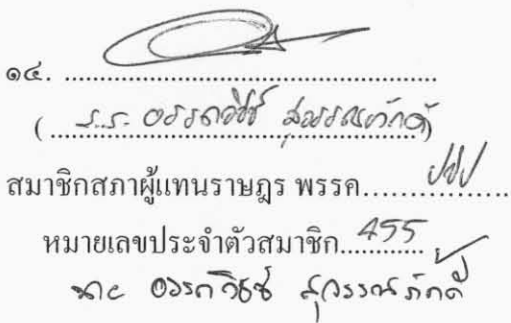 ๑๔. ........................................
( อรรถวิชช์ สุวรรณภักดี )
สมาชิกสภาผู้แทนราษฎร พรรค.....ปชป.....
หมายเลขประจำตัวสมาชิก....455....
นาย อรรถวิชช์ สุวรรณภักดี